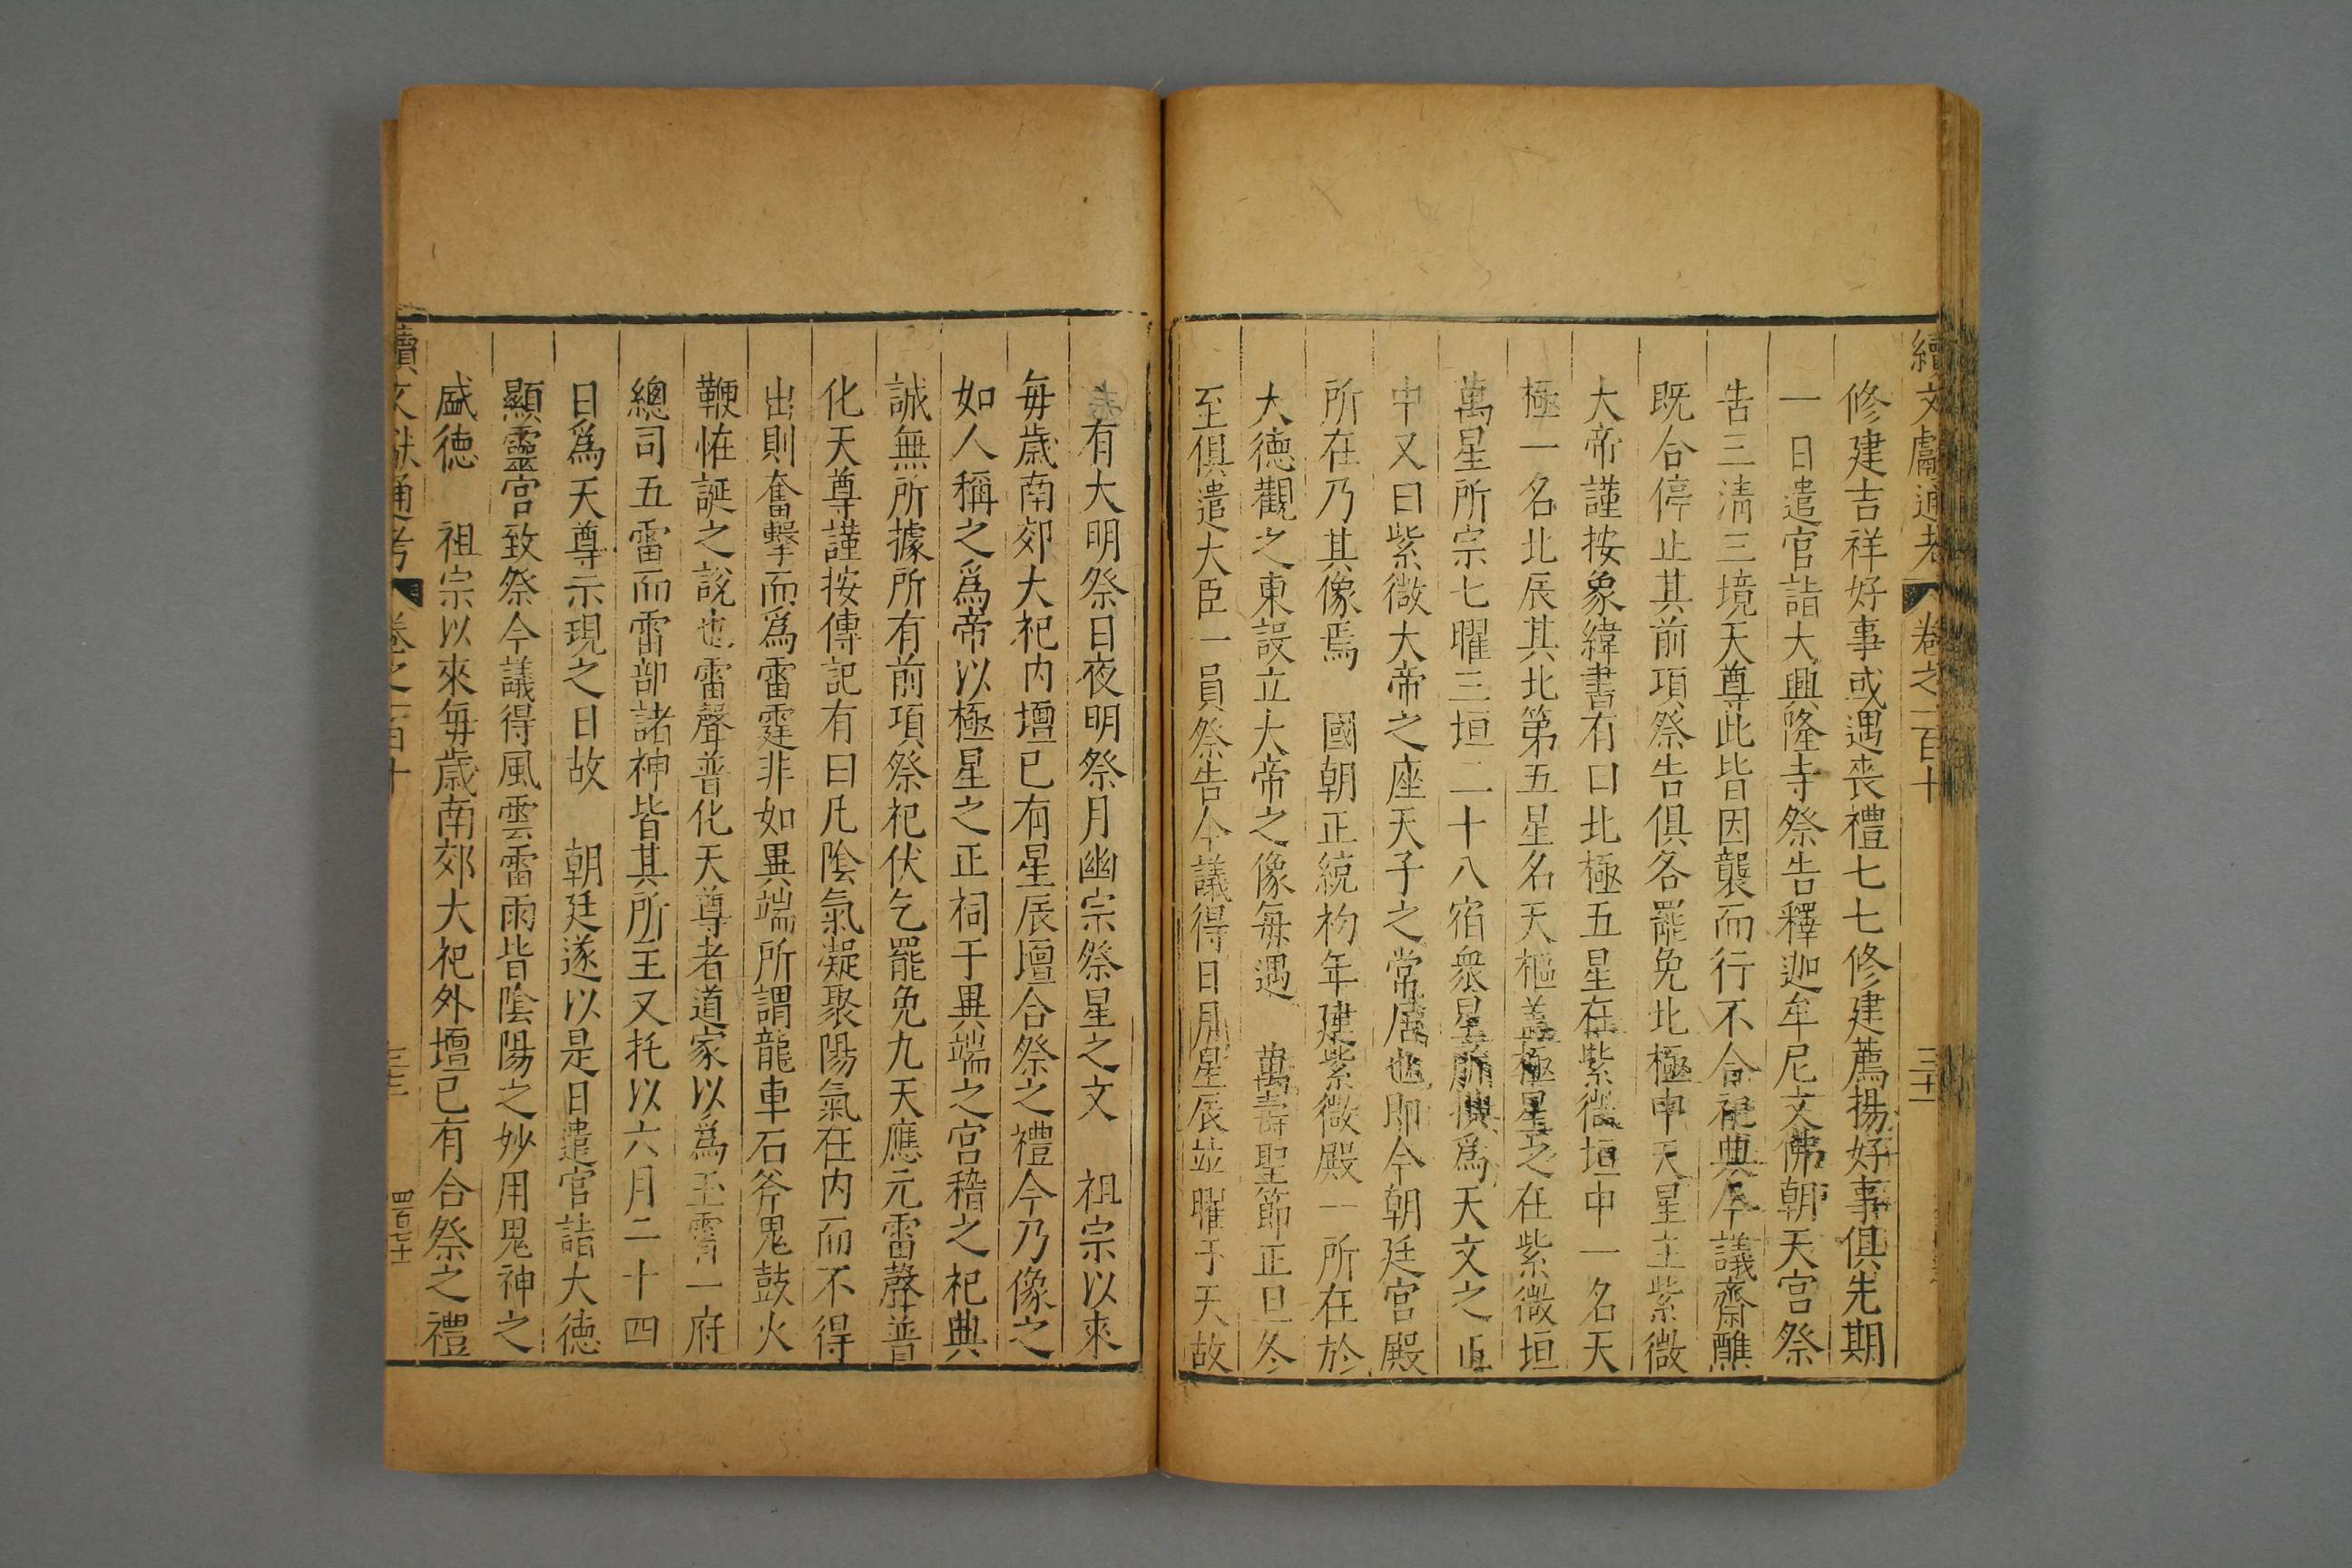 續文獻通考 卷之一百十 三十二
修建吉祥好事或遇喪禮七七修建薦揚好事俱先期
一日遣官詣大興隆寺祭告釋迦牟尼文佛朝天宮祭
告三清三境天尊此皆因襲而行不合祀典今議齋醮
既合停止其前項祭告俱各罷免北極中天星主紫微
大帝謹按象緯書有曰北極五星在紫微垣中一名天
極一名北辰其北第五星名天樞蓋極星之在紫微垣
萬星所宗七曜三垣二十八宿衆星所俱爲天文之正
中又曰紫微大帝之座天子之常居也即今朝廷宮殿
所在乃其像焉 國朝正統初年建紫微殿一所在於
大德觀之東設立大帝之像每遇 萬壽聖節正旦冬
至俱遣大臣一員祭告今議得日月星辰並曜于天故
表有大明祭日夜明祭月幽宗祭星之文 祖宗以來
每歲南郊大祀内壇已有星辰壇合祭之禮今乃像之
如人稱之爲帝以極星之正祠于異端之宮稽之祀典
誠無所據所有前項祭祀伏乞罷免九天應元雷聲普
化天尊謹按傳記有曰凡陰氣凝聚陽氣在内而不得
出則奮擊而爲雷霆非如異端所謂龍車石斧鬼鼓火
鞭怪誕之說也雷聲普化天尊者道家以爲玉霄一府
總司五雷而雷部諸神皆其所主又托以六月二十四
日爲天尊示現之日故 朝廷遂以是日遣官詣大德
顯靈宮致祭今議得風雲雷雨皆陰陽之妙用鬼神之
盛德 祖宗以來每歲南郊大祀外壇已有合祭之禮
續文獻通考 卷之一百十 三十三 四百七十